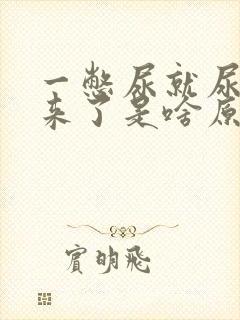 一憋尿就尿
来了是啥原
賓明飛